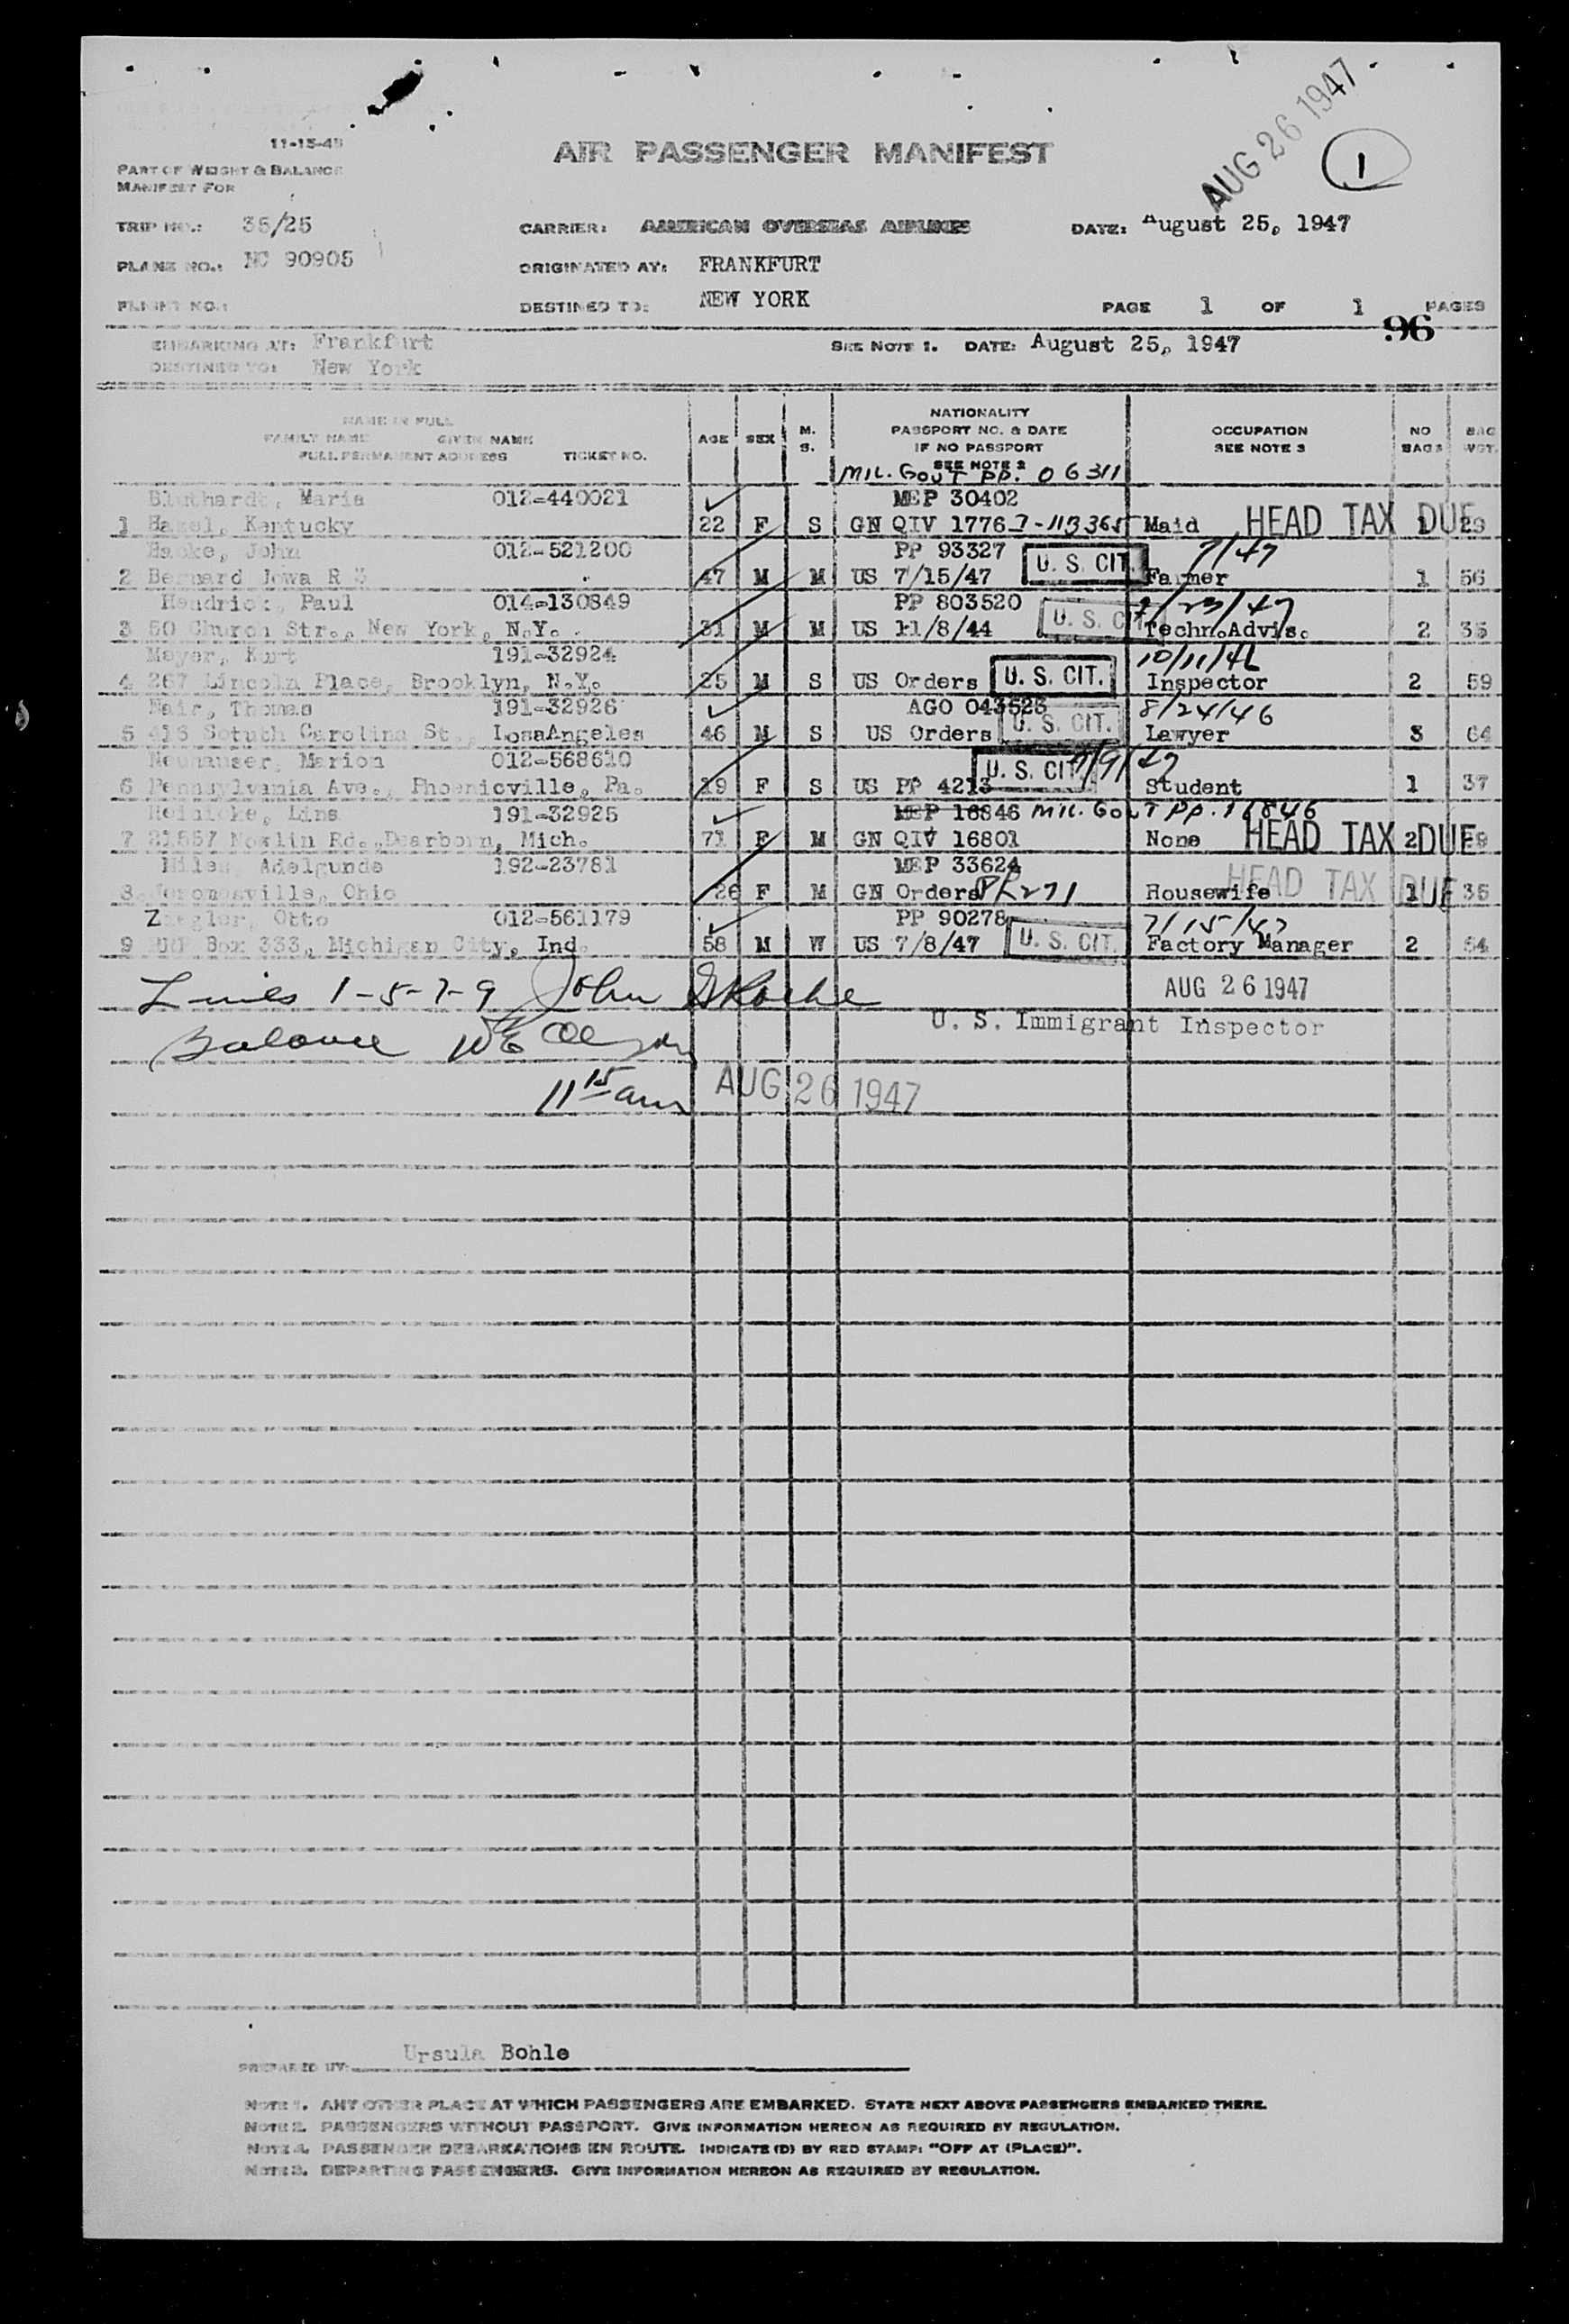 AUG 26 1947
1
11-15-45
AIR PASSENGER MANIFEST
PART OF WEIGHT & BALANCE
MANIFEST FOR
TRIP NO.: 35/25 CARRIER: AMERICAN OVERSEAS AIRLINES DATE: August 25, 1947
PLANE NO.: NC 90905 ORIGINATED AT: FRANKFURT
FLIGHT NO.: DESTINED TO: NEW YORK PAGE 1 OF 1 PAGES
96
EMBARKING AT: Frankfurt SEE NOTE 1. DATE: August 25, 1947
DESTINED TO: New York
NAME IN FULL
FAMILY NAME GIVEN NAME
FULL PERMANENT ADDRESS TICKET NO.
AGE SEX M. S.
NATIONALITY
PASSPORT NO. & DATE
IF NO PASSPORT
SEE NOTE 2
OCCUPATION
SEE NOTE 3
NO BAGS BAG WGT.
MIL. GOVT PP. 06311
Bluthardt, Maria 012-440021 MEP 30402
1 Hazel, Kentucky 22 F S GN QIV 1776 Maid HEAD TAX DUE 1 29
Hanke, John 012-521200 PP 93327 U. S. CIT. 7/47
2 Bernard Iowa R 3 47 M M US 7/15/47 Farmer 1 56
Hendrick, Paul 014-130849 PP 803520 U. S. CIT. /23/47
3 50 Church Str., New York, N.Y. 31 M M US 11/8/44 Techn.Advis. 2 35
Mayer, Kurt 191-32924 10/11/46
4 267 Lincoln Place, Brooklyn, N.Y. 25 M S US Orders U. S. CIT. Inspector 2 59
Nair, Thomas 191-32926 AGO 043528 U. S. CIT. 8/24/46
5 416 Sotuth Carolina St., LosaAngeles 46 M S US Orders Lawyer 3 64
Neuhauser, Marion 012-568610 U. S. CIT. 7/9/47
6 Pennsylvania Ave., Phoenicville, Pa. 19 F S US PP 4213 Student 1 37
Heinicke, Lina 191-32925 MEP 16846 MIL. GOVT PP. 16846
7 21557 Nowlin Rd. Dearborn, Mich. 71 F M GN QIV 16801 None HEAD TAX DUE 2 59
Adelgunde 192-23781 MEP 33624
8 Jeromesville, Ohio 26 F M GN Orders PR271 Housewife HEAD TAX DUE 1 35
Ziegler, Otto 012-561179 PP 90278 U. S. CIT. 7/15/47
9 Box 333, Michigan City, Ind. 58 M W US 7/8/47 Factory Manager 2 54
Lines 1-5-7-9 John
AUG 26 1947
U. S. Immigrant Inspector
Balance
11 15 am AUG 26 1947
PREPARED BY: Ursula Bohle
NOTE 1. ANY OTHER PLACE AT WHICH PASSENGERS ARE EMBARKED. STATE NEXT ABOVE PASSENGERS EMBARKED THERE.
NOTE 2. PASSENGERS WITHOUT PASSPORT. GIVE INFORMATION HEREON AS REQUIRED BY REGULATION.
NOTE 4. PASSENGER DEBARKATIONS EN ROUTE. INDICATE (D) BY RED STAMP: "OFF AT (PLACE)".
NOTE 3. DEPARTING PASSENGERS. GIVE INFORMATION HEREON AS REQUIRED BY REGULATION.